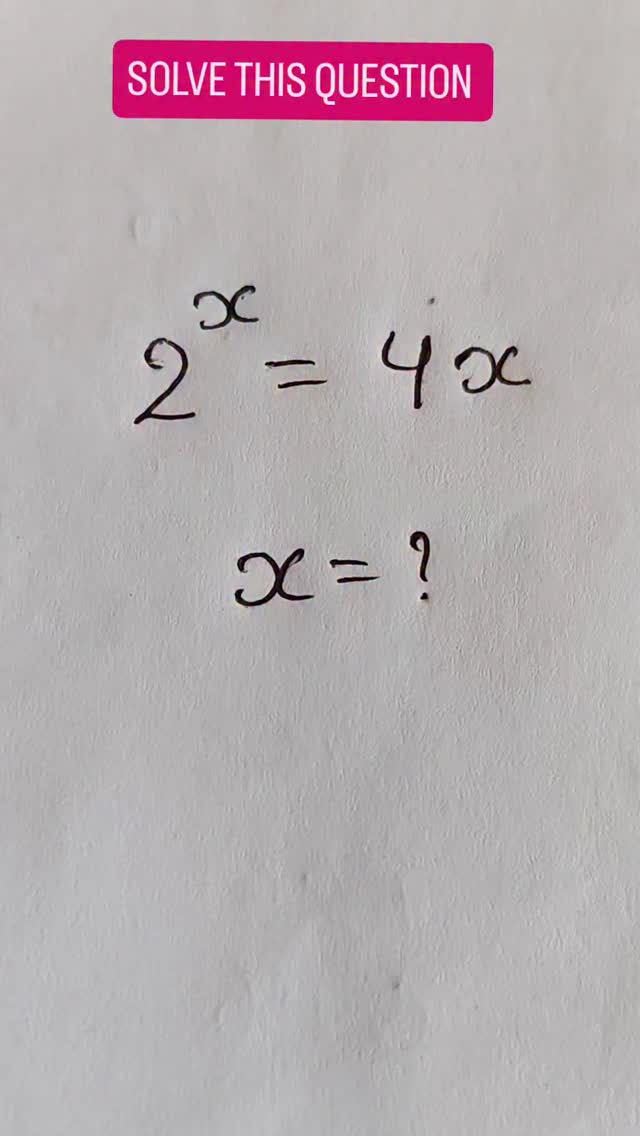 SOLVE THIS QUESTION
2^x = 4x
x = ?